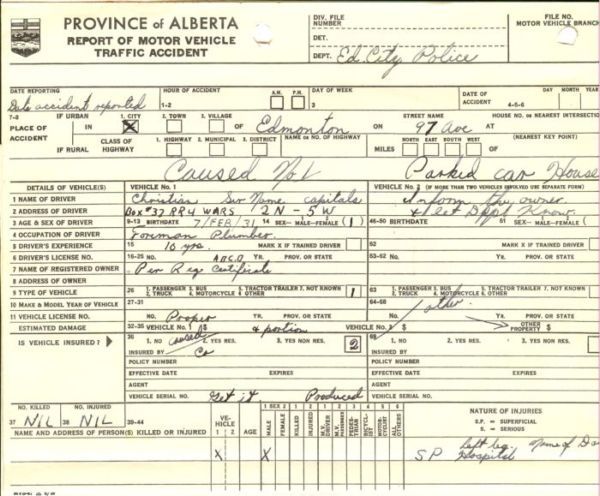 PROVINCE of ALBERTA
REPORT OF MOTOR VEHICLE
TRAFFIC ACCIDENT
DIV. FILE
NUMBER
DET.
DEPT. Ed. City Police
FILE NO.
MOTOR VEHICLE BRANCH
DATE REPORTING
Date accident reported
HOUR OF ACCIDENT
1-2
A.M. P.M.
DAY OF WEEK
3
DATE OF
ACCIDENT
4-5-6
DAY MONTH YEAR
7-8
PLACE OF
ACCIDENT
IF URBAN IN
1. CITY X 2. TOWN 3. VILLAGE
OF Edmonton
ON
STREET NAME
97 Ave
HOUSE No. or NEAREST INTERSECTION
AT
IF RURAL
CLASS OF
HIGHWAY
1. HIGHWAY 2. MUNICIPAL 3. DISTRICT
NAME or NO. OF HIGHWAY
MILES
NORTH EAST SOUTH WEST
OF
(NEAREST KEY POINT)
Caused No 1
Parked car House
DETAILS OF VEHICLE(S)
VEHICLE No. 1
VEHICLE No. 2 (IF MORE THAN TWO VEHICLES INVOLVED USE SEPARATE FORM)
1 NAME OF DRIVER
Christian Sir Name capitals
Inform the owner
2 ADDRESS OF DRIVER
Box # 37 RR4 WARS 2N - 5W
& let Dept Know.
3 AGE & SEX OF DRIVER
9-13 BIRTHDATE 7/FEB/31 14 SEX—MALE—FEMALE (1)
46-50 BIRTHDATE 51 SEX—MALE—FEMALE ( )
4 OCCUPATION OF DRIVER
Foreman Plumber
5 DRIVER'S EXPERIENCE
15 10 yrs. MARK X IF TRAINED DRIVER
52 MARK X IF TRAINED DRIVER
6 DRIVER'S LICENSE NO.
16-25 A B C D YR. PROV. OR STATE
53-62 YR. PROV. OR STATE
7 NAME OF REGISTERED OWNER
Per Reg Certificate
8 ADDRESS OF OWNER
9 TYPE OF VEHICLE
26 1. PASSENGER 3. BUS 5. TRACTOR TRAILER 7. NOT KNOWN
2. TRUCK 4. MOTORCYCLE 6. OTHER 1
63 1. PASSENGER 3. BUS 5. TRACTOR TRAILER 7. NOT KNOWN
2. TRUCK 4. MOTORCYCLE 6. OTHER
10 MAKE & MODEL YEAR OF VEHICLE
27-31
64-68
other
11 VEHICLE LICENSE NO.
Proper YR. PROV. OR STATE
YR. PROV. OR STATE
ESTIMATED DAMAGE
32-35 VEHICLE No. 1 $ & portion
VEHICLE No. 2 $
OTHER
PROPERTY $
IS VEHICLE INSURED?
36 1. NO 2. YES RES. 3. YES NON RES. 2
1. NO 2. YES RES. 3. YES NON RES.
INSURED BY Co
INSURED BY
POLICY NUMBER
POLICY NUMBER
EFFECTIVE DATE EXPIRES
EFFECTIVE DATE EXPIRES
AGENT
AGENT
VEHICLE SERIAL NO. Get it Produced
VEHICLE SERIAL NO.
NO. KILLED
NO. INJURED
37 NIL 38 NIL 39-44
NAME AND ADDRESS OF PERSON(S) KILLED OR INJURED
VE-
HICLE
1 2
AGE
1 SEX 2
MALE
FEMALE
KILLED
INJURED
M.V. DRIVER
M.V. PASSENGER
PEDES-
TRIAN
BICYCL-
IST
MOTOR-
CYCLIST
ALL
OTHERS
1 2 3 4 5 6
NATURE OF INJURIES
S.P. = SUPERFICIAL
S. = SERIOUS
X X
SP left leg
Hospital
Name of